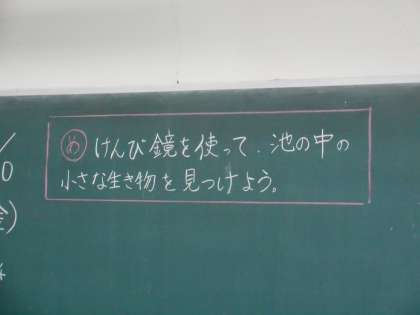 め けんび鏡を使って、池の中の
小さな生き物を見つけよう。
10
金)